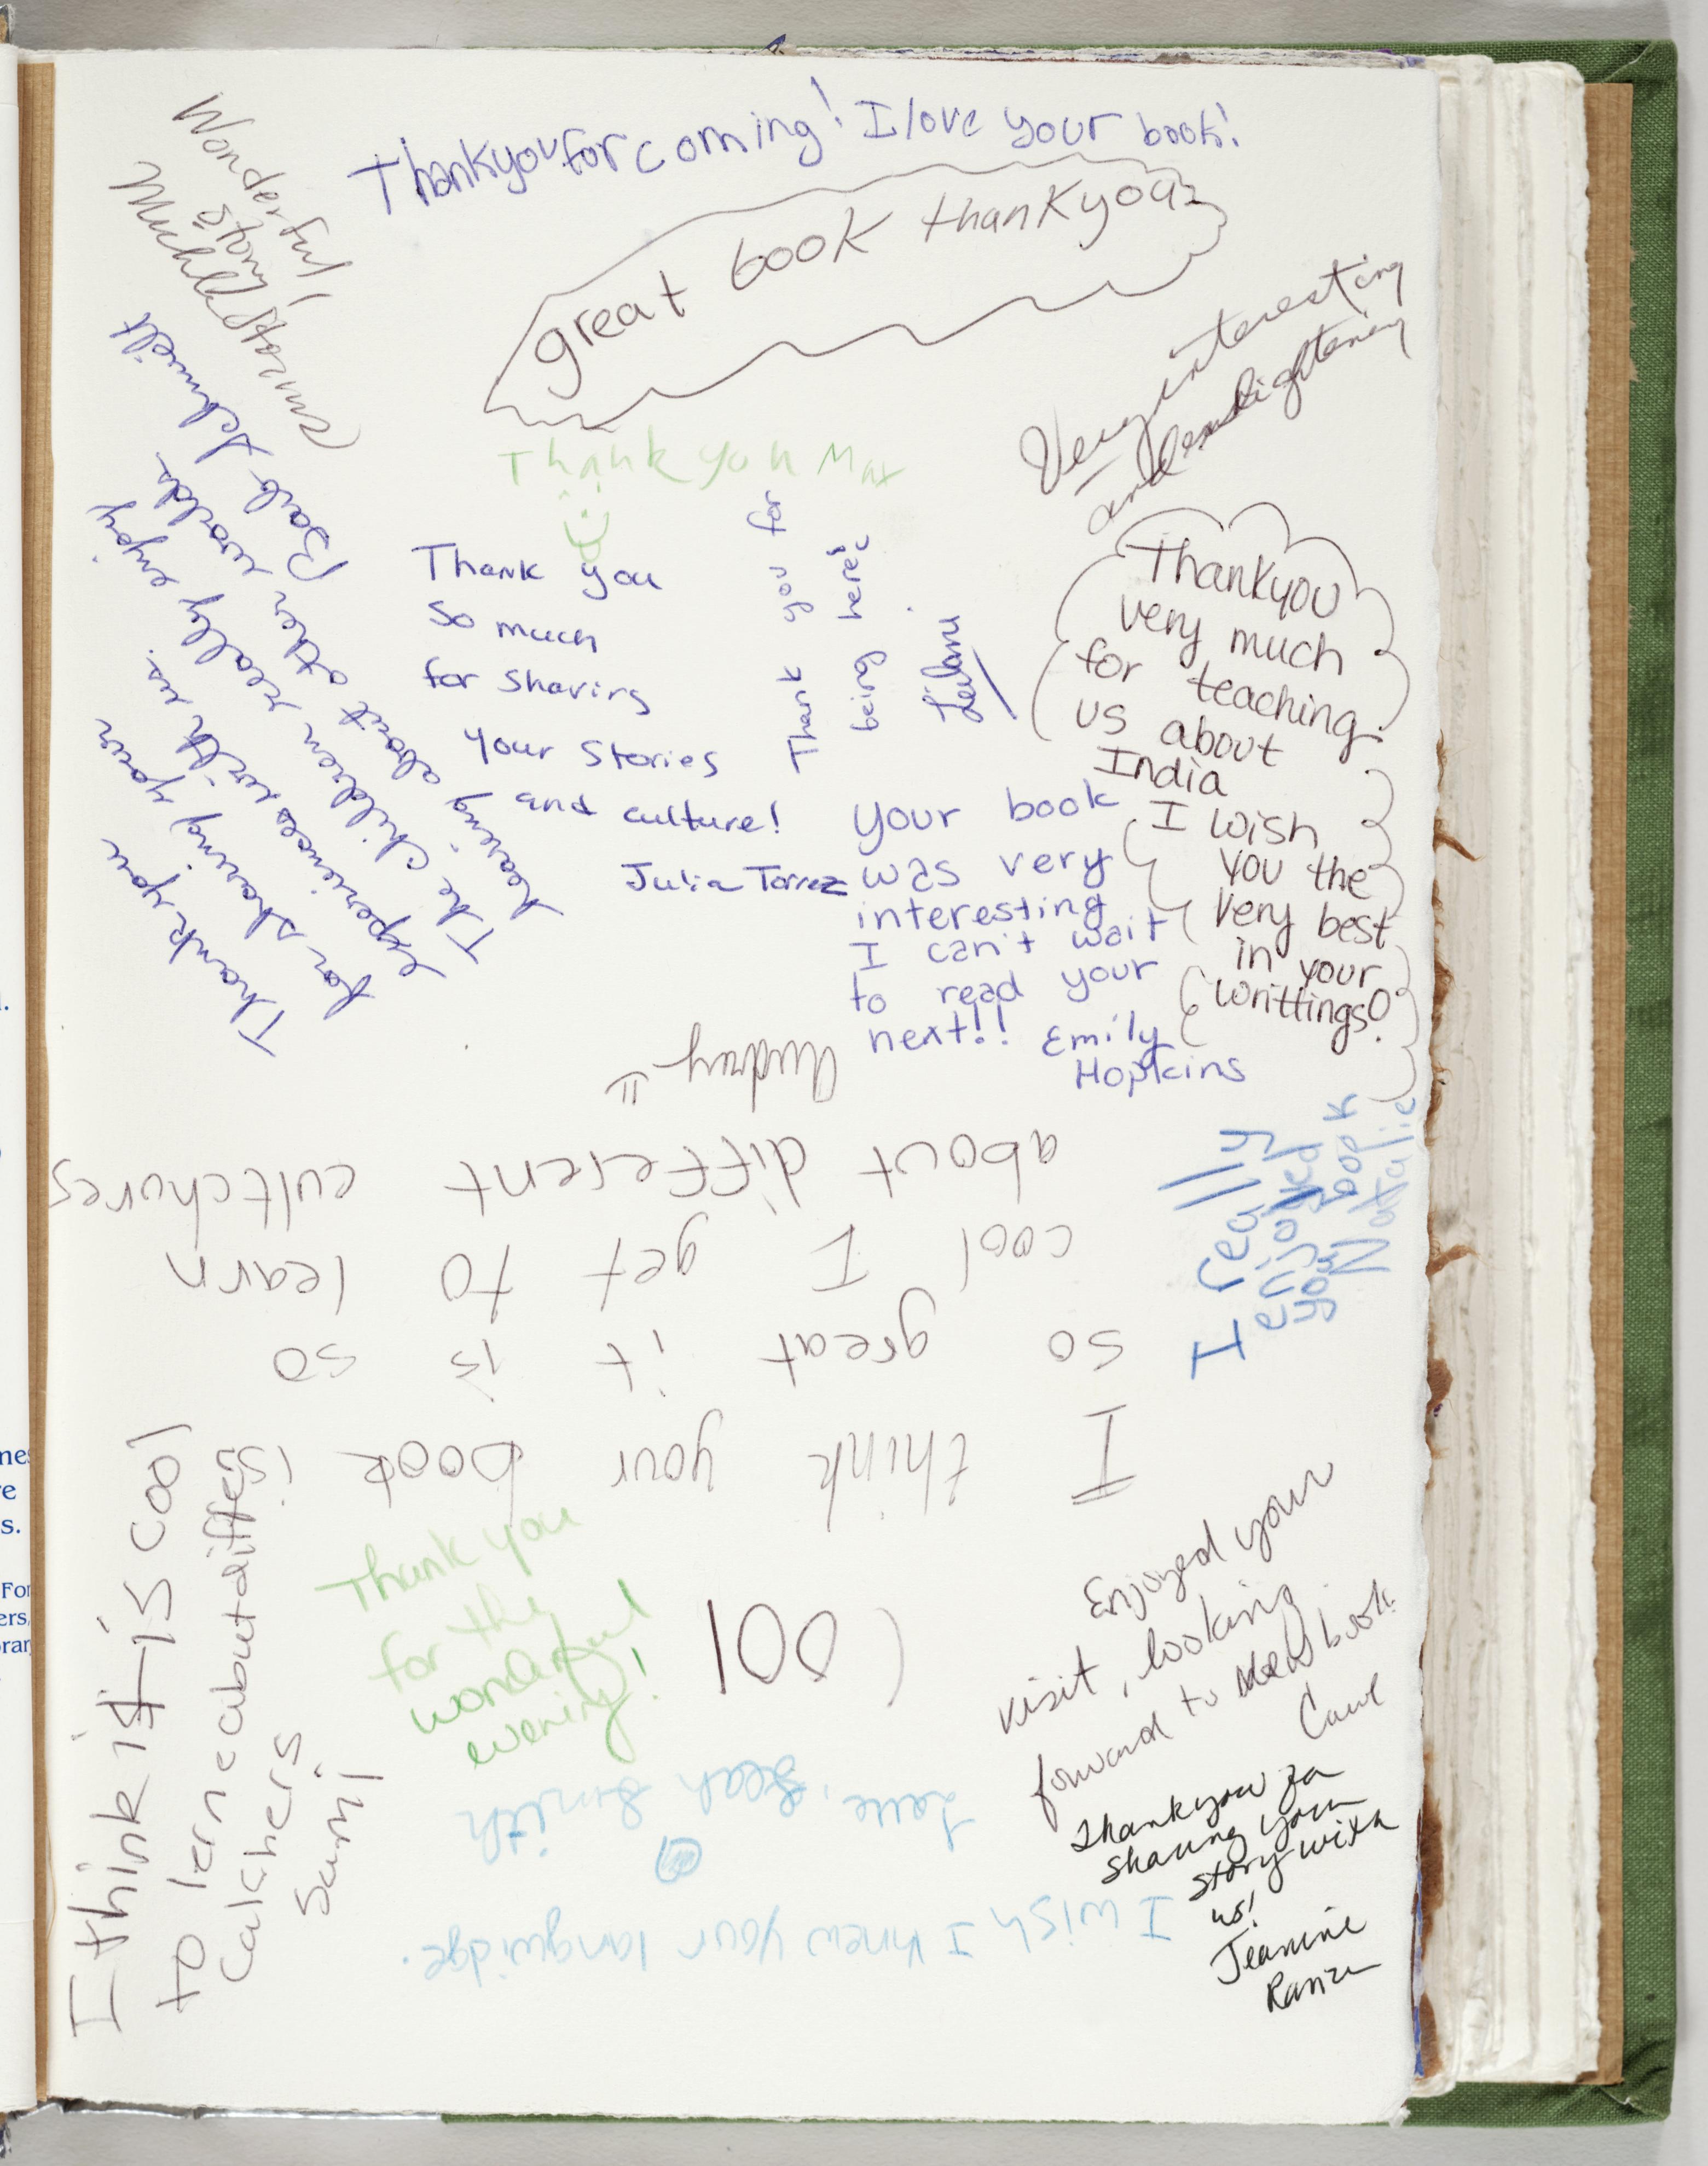 Thankyou for coming! I love your book!
great book thankyou
Wonderful
story
Very interesting
and enlightening
Thank you Max
Thank you
so much
for sharing
your stories
and culture!
Julia Torrez
Thank you for
being here!
Leilani
Thankyou
very much
for teaching
us about
India
I wish
you the
very best
in your
writtings!
Thank you
for sharing your
experiences with us.
The children really enjoy
hearing about other worlds.
Barb Schmidt
Your book
was very
interesting
I can't wait
to read your
next!! Emily
Hopkins
I really
enjoyed
your book
Natalie
I think your book is
so great it is so
cool I get to learn
about different cultchures
Audray
I think it is cool
to lern about differ
culchers
Sami
Thank you
for the
wonderful
evening!
Cool
Enjoyed your
visit, looking
forward to new book
I wish I knew your languidge.
Love, Leah Smith
Thankyou for
sharing your
story with
us!
Jeannine